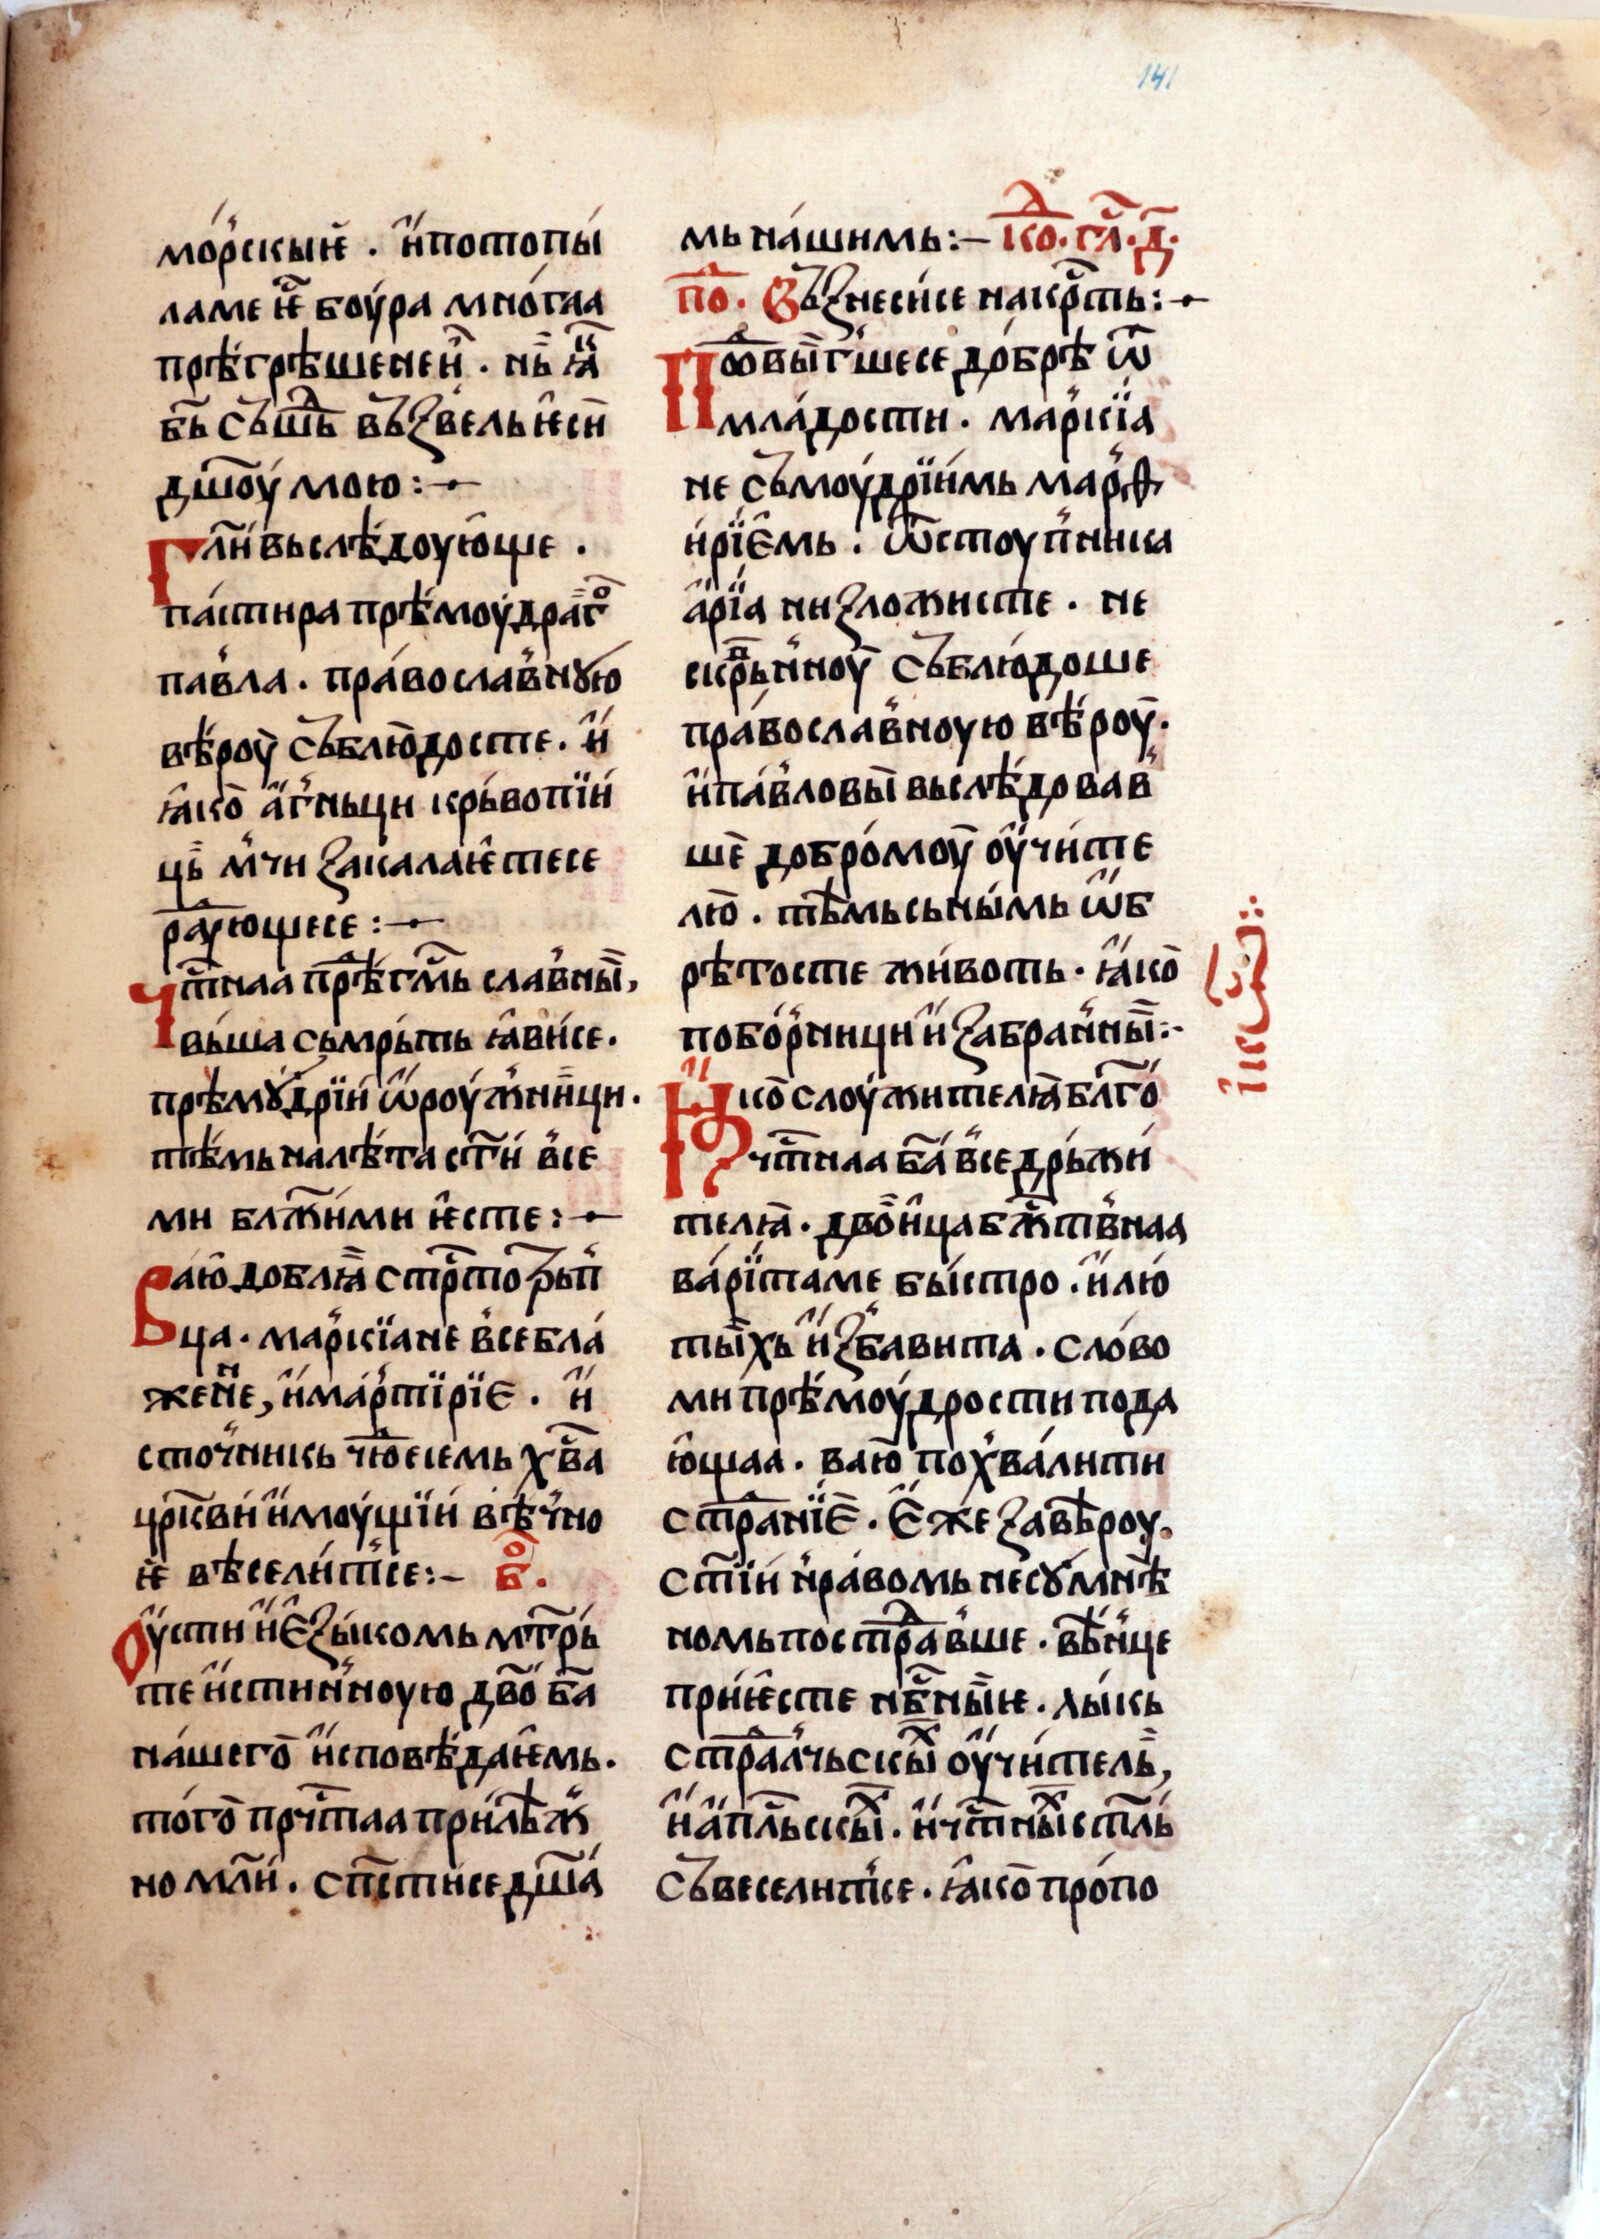 141
мо́рскыѥ . и҆ потопы́
ламе ѥ҆ боу́ра мно́гаа
прѣ́грѣшенеи҆ . нь ꙗ҆̏
бь̑ съшⷣь въꙁве́ль ѥ҆си̏
дш҃оу́ мою :~
Гл҃и́ вьслѣ́доую҆ще .
па́стира прѣ́моу́драгⷪ҇
па́вла . пра́вославнꙋю
вѣ́роу̀ съблю́досте . и҆
ꙗ҆ко̀ а҆́гн҆ьци крь́вопїи́
ць мч҃и ꙁакалаѥ҆тесе
раⷣующесе :~
Чтⷭ҇наа прѣⷣ гмⷭ҇ь сла́вны̏,
вы́ша сьмрь́ть ꙗ҆ви́се .
прѣмꙋ́дрїи́ ѡ҆роу́жниц̏и .
тѣ́мь на лѣ́та ст҃и́ в҆се
ми блⷤ҇и́ми ѥ҆сте :~
Ваю҆̑ доблꙗ̏ стрⷭ҇тотрьп̾
ца . ма́ркїане в҆себла́
женне, и҆ ма́ртїрїе . и҆
сточ҆никь чюⷣесемь хв҃а
црⷦ҇ви́ и҆моу́щїи́ вѣ́ч҆но
ѥ̏ вѣсели́т҆се :~ бⷪ҇ .
Оу҆сти и҆ е҆ꙁы́комь мт҃рь́
те и҆стин҆ноую дв҃о́ ба҃
на́шего̀ и҆сповѣ́даѥ҆мь .
то́го̀ прчⷭ҇таа при́лѣⷤ
но мл҃и́ . спⷭ҇ти́се дш҃а́
мь на́шимь :~ коⷣ . глⷭ҇ . д҃ .
поⷣ . Въꙁнеси́се на крⷭ҇ть :~
Поⷣвы́г҆шесе до́брѣ ѿ
мла́дости . ма́ркїа
не съ моу́дрїи́мь ма́рт
и́рїе҆мь . ѿстоу́п҆ника
а҆́рїа ниꙁложисте . не
скрⷫ҇ь́н҆ноу̀ съблю́доше
пра́восла́вноую вѣ́роу̀ .
и҆ па́вловы̀ вьслѣ́довав̾
ше̏ добро́моу̀ оу҆чи́те
лю̀ . тѣ́мь сь ны́мь ѡ҆б
рѣтосте жи́воть . ꙗ҆ко̀
побо́рници и҆ ꙁабран҆ны̏ :~
Ꙗко̀ слоу́жителꙗ̏ бл҃го́
чтⷭ҇наа ба҃ в҆седрь́жи́
телꙗ̀ . дво̏и҆ца бжⷭ҇тв҆наа
ва́рїта́ме бы́стро . и҆ лю́
ты̏хь и҆ꙁба́вита . сло́во
ми прѣ́моу́дрости пода
ю҆щаа . ваю̀ пох҆ва́лити
страⷣнїе̏ . е҆́же ꙁа вѣ́роу .
ст҃їи́ н҆ра́вомь несꙋмнѣ̏
номь постраⷣв҆ше . вѣ́н҆це
при́ѥ҆сте нбⷭ҇ны̏ѥ . лы́кь
страⷣлчьскыⷯ оу҆чи́тель̏,
и҆ а҆пⷭ҇льскыⷯ . и҆ чтⷭ҇ныⷯ ст҃ль́
съвесели́т҆се . ꙗ҆ко̀ про́по